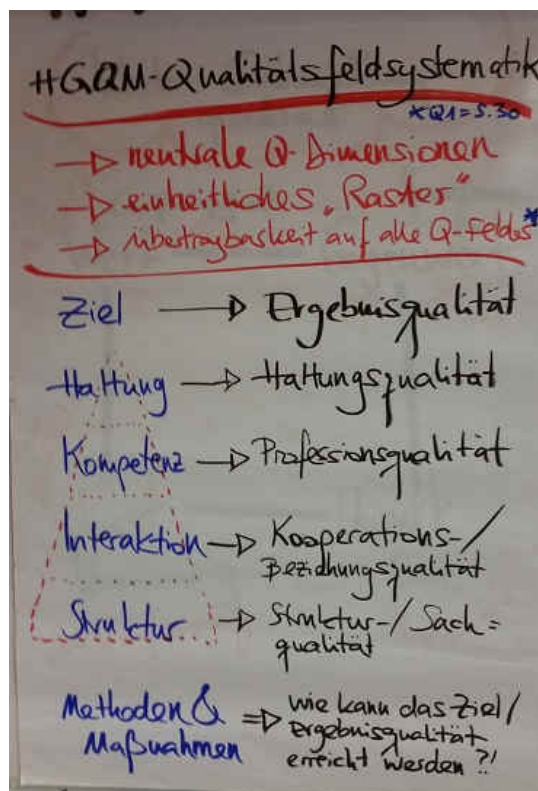 HGQM-Qualitätsfeldsystematik
*QA=S.30
→ neutrale Q-Dimensionen
→ einheitliches „Raster"
→ Übertragbarkeit auf alle Q-Felder*
Ziel → Ergebnisqualität
Haltung → Haltungsqualität
Kompetenz → Professionsqualität
Interaktion → Kooperations-/
Beziehungsqualität
Struktur → Struktur-/Sach=
qualität
Methoden & ⇒ wie kann das Ziel/
Maßnahmen Ergebnisqualität
erreicht werden?!